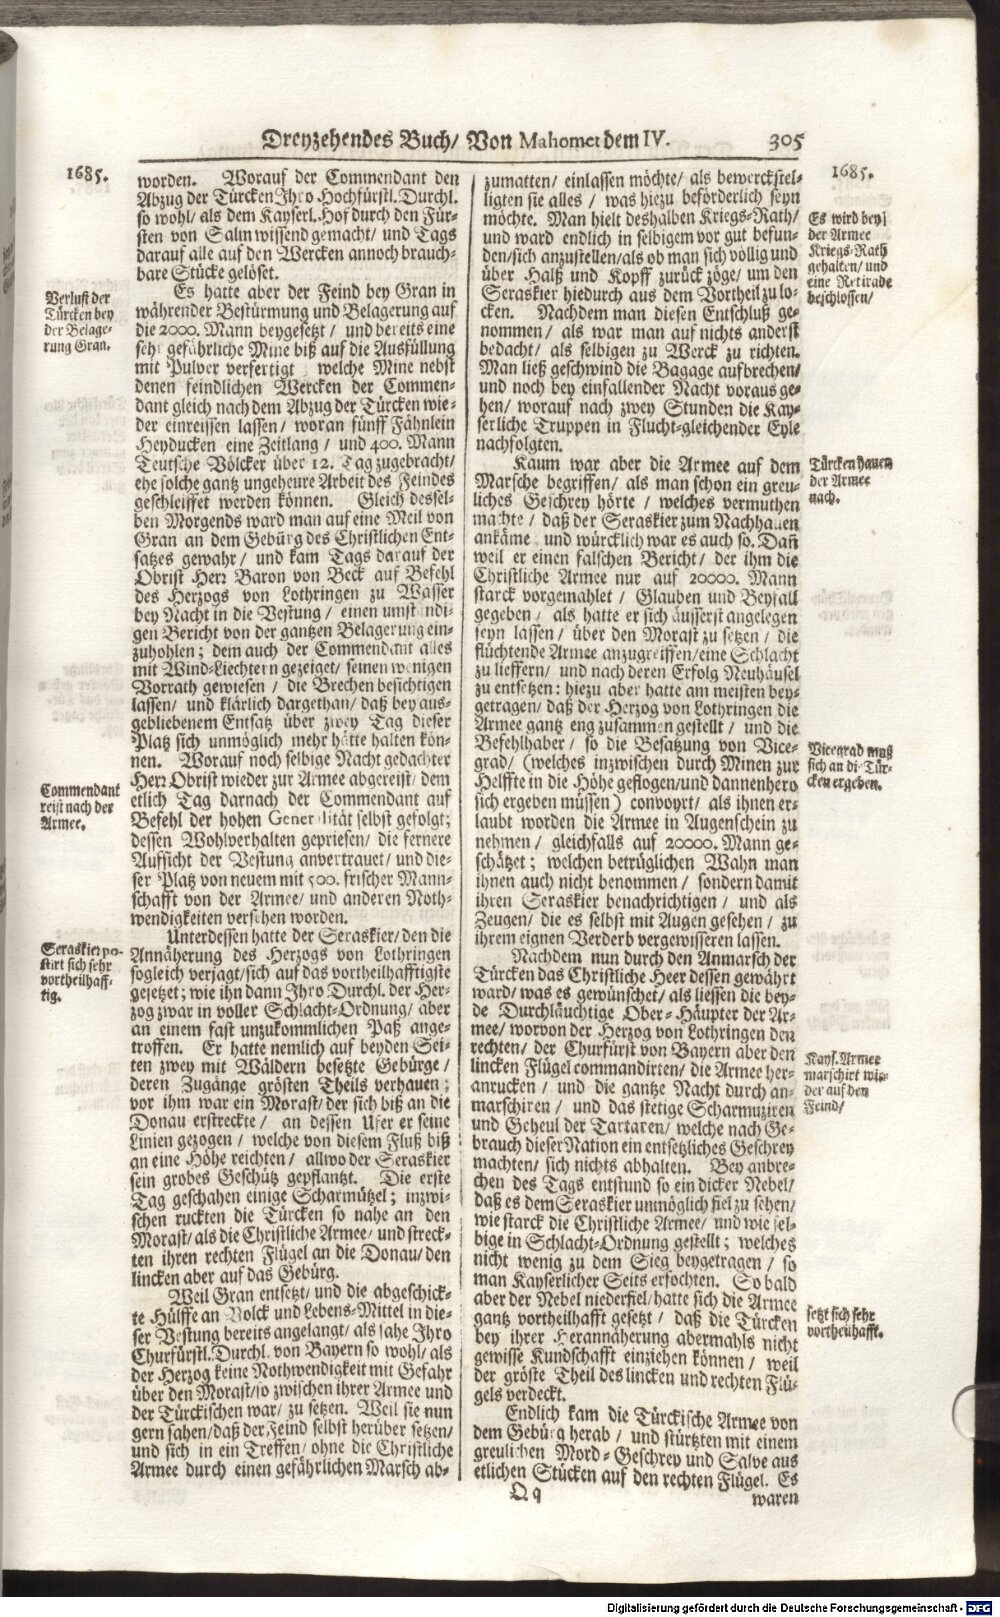 Dreyzehendes Buch/ Von Mahomet dem IV. 305
1685.
worden. Worauf der Commendant den
Abzug der Türcken Ihro Hochfürstl. Durchl.
so wohl/ als dem Kayserl. Hof durch den Für-
sten von Salm wissend gemacht/ und Tags
darauf alle auf den Wercken annoch brauch-
bare Stücke gelöset.
Verlust der
Türcken bey
der Belage-
rung Gran.
Es hatte aber der Feind bey Gran in
währender Bestürmung und Belagerung auf
die 2000. Mann beygesetzt/ und bereits eine
sehr gefährliche Mine biß auf die Ausfüllung
mit Pulver verfertigt/ welche Mine nebst
denen feindlichen Wercken der Commen-
dant gleich nach dem Abzug der Türcken wie-
der einreissen lassen/ woran fünff Fähnlein
Heyducken eine Zeitlang/ und 400. Mann
Teutsche Völcker über 12. Tag zugebracht/
ehe solche gantz ungeheure Arbeit des Feindes
geschleiffet werden können. Gleich dessel-
ben Morgends ward man auf eine Meil von
Gran an dem Gebürg des Christlichen Ent-
satzes gewahr/ und kam Tags darauf der
Obrist Herr Baron von Beck auf Befehl
des Herzogs von Lothringen zu Wasser
bey Nacht in die Vestung/ einen umständi-
gen Bericht von der gantzen Belagerung ein-
zuhohlen; dem auch der Commendant alles
mit Wind-Liechtern gezeiget/ seinen wenigen
Vorrath gewiesen/ die Brechen besichtigen
lassen/ und klärlich dargethan/ daß bey aus-
gebliebenem Entsatz über zwey Tag dieser
Platz sich unmöglich mehr hätte halten kön-
nen. Worauf noch selbige Nacht gedachter
Herr Obrist wieder zur Armee abgereist/ dem
etlich Tag darnach der Commendant auf
Befehl der hohen Generalität selbst gefolgt;
dessen Wohlverhalten gepriesen/ die fernere
Aufsicht der Vestung anvertrauet/ und die-
ser Platz von neuem mit 500. frischer Mann-
schafft von der Armee/ und anderen Noth-
wendigkeiten versehen worden.
Commendant
reist nach der
Armee.
Seraskier po-
stirt sich sehr
vortheilhaff-
tig.
Unterdessen hatte der Seraskier/ den die
Annäherung des Herzogs von Lothringen
sogleich verjagt/ sich auf das vortheilhafftigste
gesetzet; wie ihn dann Ihro Durchl. der Her-
zog zwar in voller Schlacht-Ordnung/ aber
an einem fast unzukommlichen Paß ange-
troffen. Er hatte nemlich auf beyden Sei-
ten zwey mit Wäldern besetzte Gebürge/
deren Zugänge grösten Theils verhauen;
vor ihm war ein Morast/ der sich biß an die
Donau erstreckte/ an dessen Ufer er seine
Linien gezogen/ welche von diesem Fluß biß
an eine Höhe reichten/ allwo der Seraskier
sein grobes Geschütz gepflantzt. Die erste
Tag geschahen einige Scharmützel; inzwi-
schen ruckten die Türcken so nahe an den
Morast/ als die Christliche Armee/ und streck-
ten ihren rechten Flügel an die Donau/ den
lincken aber auf das Gebürg.
Weil Gran entsetzt/ und die abgeschick-
te Hülffe an Volck und Lebens-Mittel in die-
ser Vestung bereits angelangt/ als sahe Ihro
Churfürstl. Durchl. von Bayern so wohl/ als
der Herzog keine Nothwendigkeit mit Gefahr
über den Morast/ so zwischen ihrer Armee und
der Türckischen war/ zu setzen. Weil sie nun
gern sahen/ daß der Feind selbst herüber setzen/
und sich in ein Treffen/ ohne die Christliche
Armee durch einen gefährlichen Marsch ab-
1685.
zumatten/ einlassen möchte/ als bewerckstel-
ligten sie alles/ was hiezu beförderlich seyn
möchte. Man hielt deshalben Kriegs-Rath/
und ward endlich in selbigem vor gut befun-
den/ sich anzustellen/ als ob man sich völlig und
über Halß und Kopff zurück zöge/ um den
Seraskier hiedurch aus dem Vortheil zu lo-
cken. Nachdem man diesen Entschluß ge-
nommen/ als war man auf nichts anderst
bedacht/ als selbigen zu Werck zu richten.
Man ließ geschwind die Bagage aufbrechen/
und noch bey einfallender Nacht voraus ge-
hen/ worauf nach zwey Stunden die Kay-
serliche Truppen in Flucht-gleichender Eyle
nachfolgten.
Es wird bey
der Armee
Kriegs-Rath
gehalten/ und
eine Retirade
beschlossen/
Kaum war aber die Armee auf dem
Marsche begriffen/ als man schon ein greu-
liches Geschrey hörte/ welches vermuthen
machte/ daß der Seraskier zum Nachhauen
ankäme/ und würcklich war es auch so. Dañ
weil er einen falschen Bericht/ der ihm die
Christliche Armee nur auf 20000. Mann
starck vorgemahlet/ Glauben und Beyfall
gegeben/ als hatte er sich äusserst angelegen
seyn lassen/ über den Morast zu setzen/ die
flüchtende Armee anzugreiffen/ eine Schlacht
zu lieffern/ und nach deren Erfolg Neuhäusel
zu entsetzen: hiezu aber hatte am meisten bey-
getragen/ daß der Herzog von Lothringen die
Armee gantz eng zusammen gestellt/ und die
Befehlhaber/ so die Besatzung von Vice-
grad/ (welches inzwischen durch Minen zur
Helffte in die Höhe geflogen/ und dannenhero
sich ergeben müssen) convoyrt/ als ihnen er-
laubt worden die Armee in Augenschein zu
nehmen/ gleichfalls auf 20000. Mann ge-
schätzet; welchen betrüglichen Wahn man
ihnen auch nicht benommen/ sondern damit
ihren Seraskier benachrichtigen/ und als
Zeugen/ die es selbst mit Augen gesehen/ zu
ihrem eignen Verderb vergewisseren lassen.
Türcken hauen
der Armee
nach.
Vicegrad muß
sich an die Tür-
cken ergeben.
Nachdem nun durch den Anmarsch der
Türcken das Christliche Heer dessen gewährt
ward/ was es gewünschet/ als liessen die bey-
de Durchläuchtige Ober-Häupter der Ar-
mee/ worvon der Herzog von Lothringen den
rechten/ der Churfürst von Bayern aber den
lincken Flügel commandirten/ die Armee her-
anrucken/ und die gantze Nacht durch an-
marschiren/ und das stetige Scharmuziren
und Geheul der Tartaren/ welche nach Ge-
brauch dieser Nation ein entsetzliches Geschrey
machten/ sich nichts abhalten. Bey anbre-
chen des Tags entstund so ein dicker Nebel/
daß es dem Seraskier unmöglich fiel zu sehen/
wie starck die Christliche Armee/ und wie sel-
bige in Schlacht-Ordnung gestellt; welches
nicht wenig zu dem Sieg beygetragen/ so
man Kayserlicher Seits erfochten. So bald
aber der Nebel niederfiel/ hatte sich die Armee
gantz vortheilhafft gesetzt/ daß die Türcken
bey ihrer Herannäherung abermahls nicht
gewisse Kundschafft einziehen können/ weil
der gröste Theil des lincken und rechten Flü-
gels verdeckt.
Kays. Armee
marschirt wie-
der auf den
Feind/
setzt sich sehr
vortheilhafft.
Endlich kam die Türckische Armee von
dem Gebürg herab/ und stürtzten mit einem
greulichen Mord-Geschrey und Salve aus
etlichen Stücken auf den rechten Flügel. Es
Q q
waren
Digitalisierung gefördert durch die Deutsche Forschungsgemeinschaft - DFG